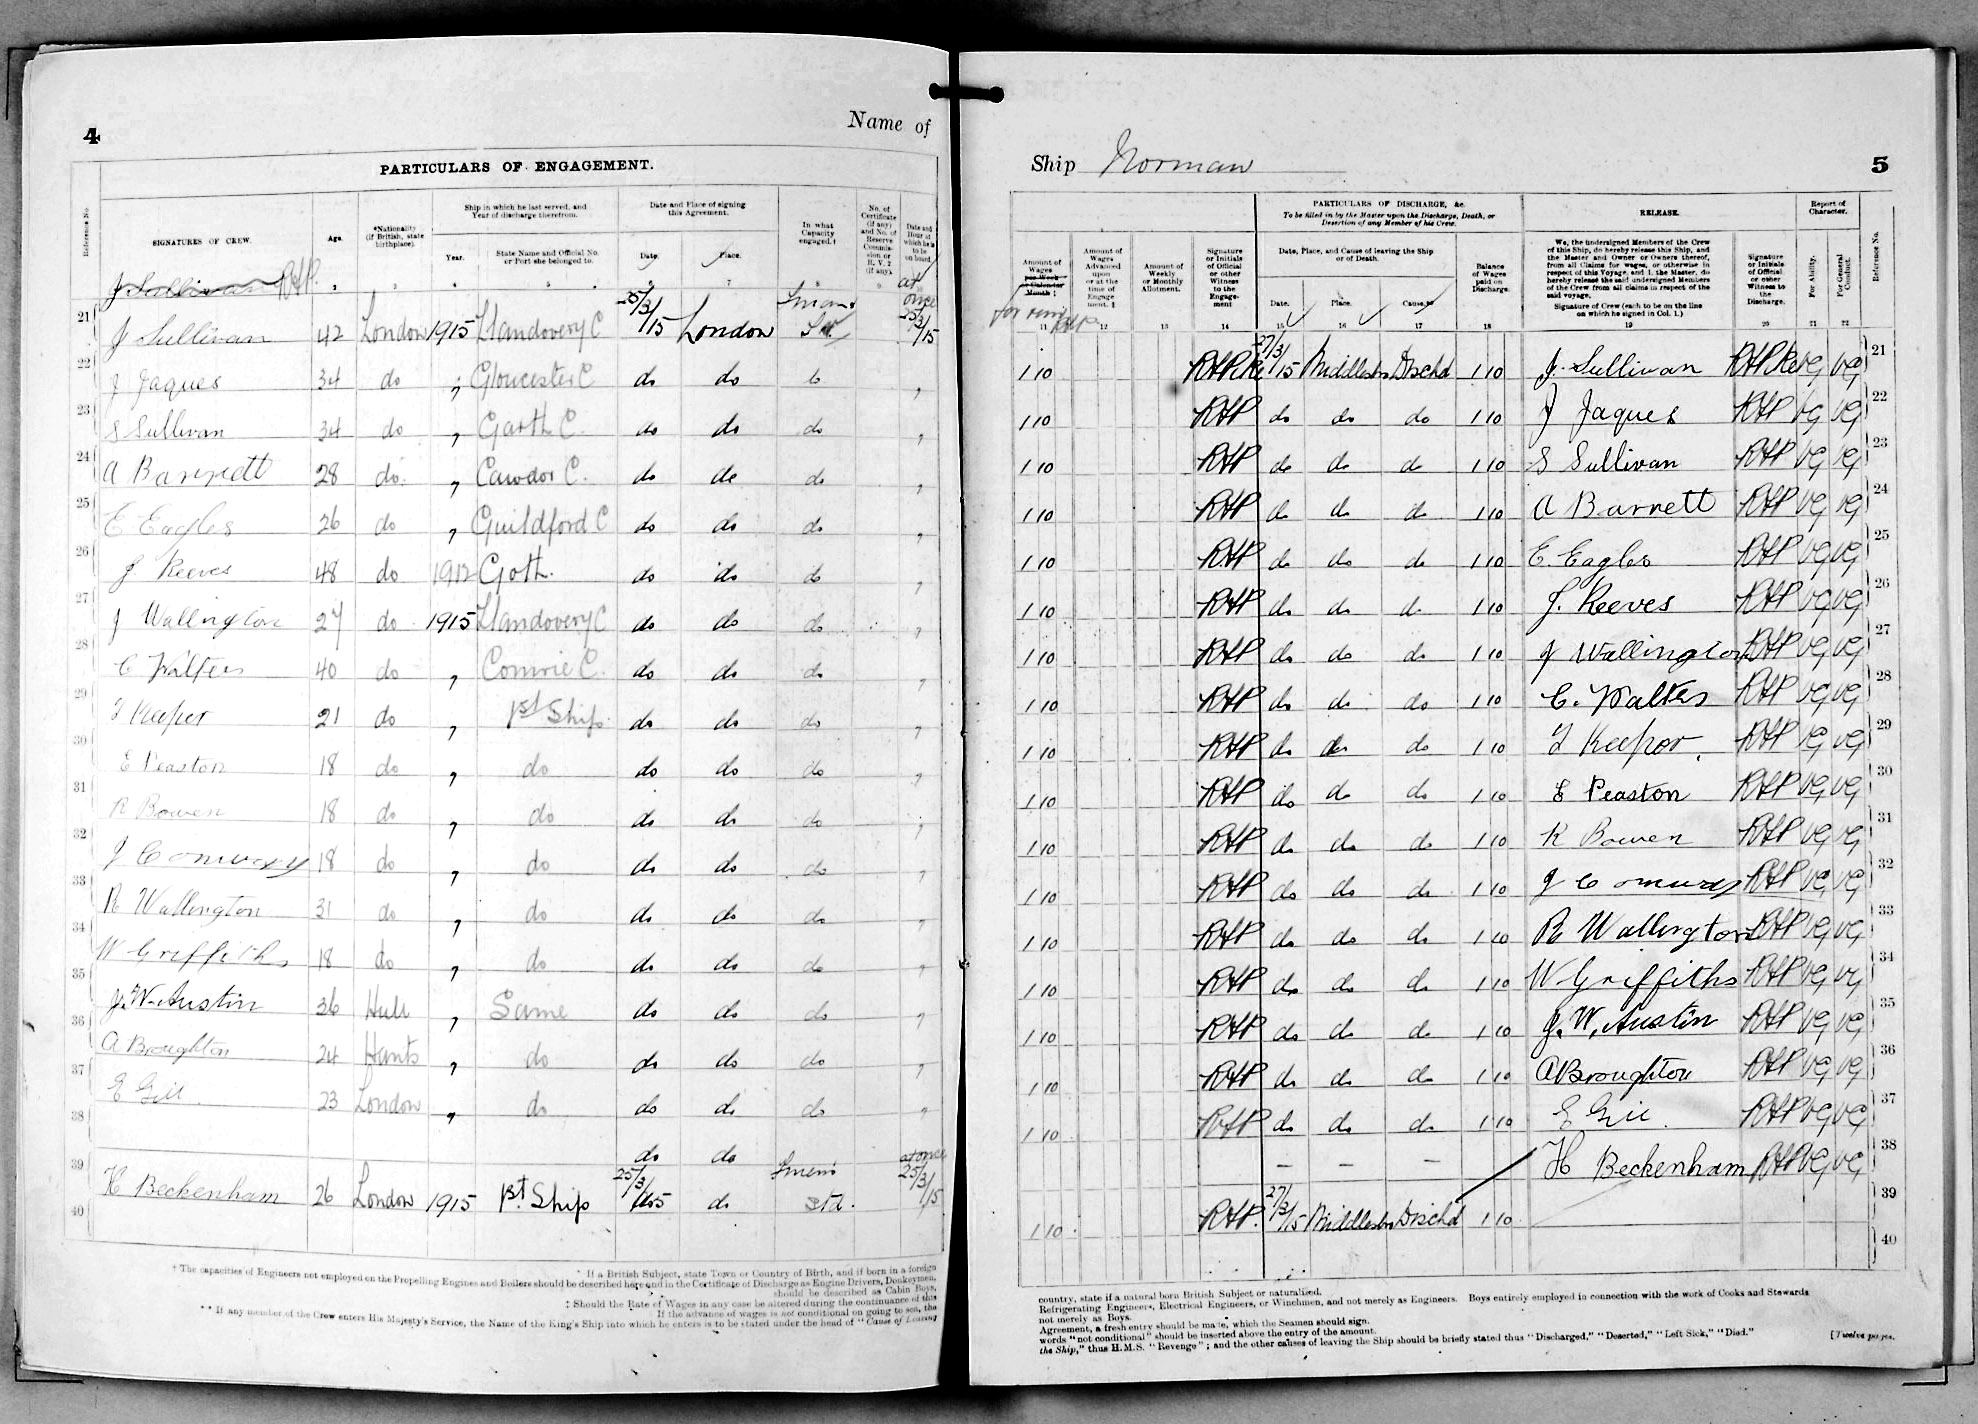 4
Name of
PARTICULARS OF ENGAGEMENT.
Reference No.
SIGNATURES OF CREW.
Age.
*Nationality (If British, state birthplace).
Ship in which he last served, and Year of discharge therefrom.
Year.
State Name and Official No. or Port she belonged to.
Date and Place of signing this Agreement.
Date.
Place.
In what Capacity engaged.†
No. of Certificate (if any) and No. of Reserve Commission or R. V. 2 (if any).
Date and Hour at which he is to be on board.
J Sullivan RHP.
21 J Sullivan 42 London 1915 Llandovery C 25/3/15 London at once 25/3/15
22 J Jaques 34 do " Gloucester C do do do "
23 S Sullivan 34 do " Garth C. do do do "
24 A Barnett 28 do " Cawdor C. do do do "
25 E Eagles 26 do " Guildford C do do do "
26 J Reeves 48 do 1912 Goth. do do do "
27 J Wallington 27 do 1915 Llandovery C do do do "
28 C Walters 40 do " Comrie C. do do do "
29 T Keeper 21 do " 1st Ship. do do do "
30 E Peaston 18 do " do do do do "
31 R Bowen 18 do " do do do do "
32 J Conway 18 do " do do do do "
33 R Wallington 31 do " do do do do "
34 W Griffiths 18 do " do do do do "
35 J. W. Austin 36 Hull " Same do do do "
36 A Broughton 24 Hants " do do do do "
37 E Gill 23 London " do do do do "
38 do do
39 H Beckenham 26 London 1915 1st Ship 25/3/15 do at once 25/3/15
40
* If a British Subject, state Town or Country of Birth, and if born in a foreign
† The capacities of Engineers not employed on the Propelling Engines and Boilers should be described here and in the Certificate of Discharge as Engine Drivers, Donkeymen,
should be described as Cabin Boys,
‡ Should the Rate of Wages in any case be altered during the continuance of this
If the advance of wages is not conditional on going to sea, the
** If any member of the Crew enters His Majesty's Service, the Name of the King's Ship into which he enters is to be stated under the head of "Cause of Leaving
Ship Norman
5
PARTICULARS OF DISCHARGE, &c.
To be filled in by the Master upon the Discharge, Death, or Desertion of any Member of his Crew.
RELEASE.
Report of Character.
Reference No.
Amount of Wages per Week or Calendar Month ‡
Amount of Wages Advanced upon or at the time of Engagement. ‖
Amount of Weekly or Monthly Allotment.
Signature or Initials of Official or other Witness to the Engagement
Date, Place, and Cause of leaving the Ship or of Death.
Date.
Place.
Cause.**
Balance of Wages paid on Discharge.
We, the undersigned Members of the Crew of this Ship, do hereby release this Ship, and the Master and Owner or Owners thereof, from all Claims for wages, or otherwise in respect of this Voyage, and I, the Master, do hereby release the said undersigned Members of the Crew from all claims in respect of the said voyage.
Signature of Crew (each to be on the line on which he signed in Col. 1.)
Signature or Initials of Official or other Witness to the Discharge.
For Ability.
For General Conduct.
for run RHP.
11 12 13 14 15 16 17 18 19 20 21 22
1 10 RHP 27/3/15 Middlesbro Dischd 1 10 J. Sullivan RHP VG VG 21
1 10 RHP do do do 1 10 J Jaques RHP VG VG 22
1 10 RHP do do do 1 10 S Sullivan RHP VG VG 23
1 10 RHP do do do 1 10 A Barnett RHP VG VG 24
1 10 RHP do do do 1 10 E. Eagles RHP VG VG 25
1 10 RHP do do do 1 10 J. Reeves RHP VG VG 26
1 10 RHP do do do 1 10 J Wallington RHP VG VG 27
1 10 RHP do do do 1 10 C. Walters RHP VG VG 28
1 10 RHP do do do 1 10 T Keeper. RHP VG VG 29
1 10 RHP do do do 1 10 E Peaston RHP VG VG 30
1 10 RHP do do do 1 10 R Bowen RHP VG VG 31
1 10 RHP do do do 1 10 J Conway RHP VG VG 32
1 10 RHP do do do 1 10 R Wallington RHP VG VG 33
1 10 RHP do do do 1 10 W Griffiths RHP VG VG 34
1 10 RHP do do do 1 10 J. W. Austin RHP VG VG 35
1 10 RHP do do do 1 10 A Broughton RHP VG VG 36
1 10 RHP do do do 1 10 E Gill. RHP VG VG 37
– – – H Beckenham RHP VG VG 38
1 10 RHP. 27/3/15 Middlesbro Dischd 1 10 39
40
country, state if a natural born British Subject or naturalized.
Refrigerating Engineers, Electrical Engineers, or Winchmen, and not merely as Engineers. Boys entirely employed in connection with the work of Cooks and Stewards
not merely as Boys.
Agreement, a fresh entry should be made, which the Seamen should sign.
words "not conditional" should be inserted above the entry of the amount.
the Ship," thus H.M.S. "Revenge"; and the other causes of leaving the Ship should be briefly stated thus "Discharged," "Deserted," "Left Sick," "Died."
[Twelve pages.